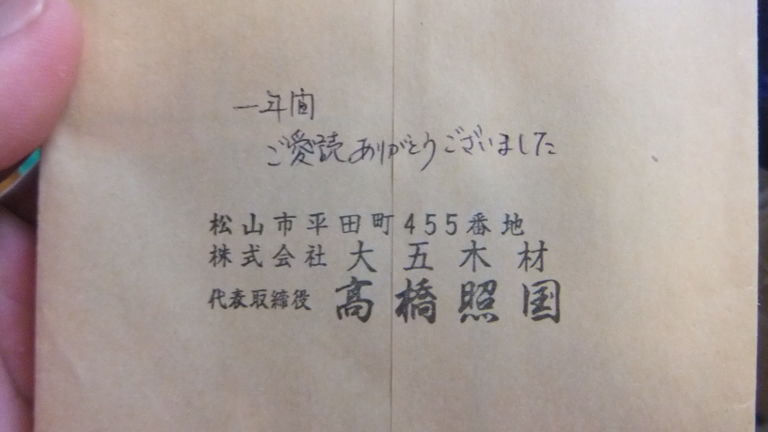 一年間
ご愛読ありがとうございました
松山市平田町455番地
株式会社 大五木材
代表取締役 高橋照国